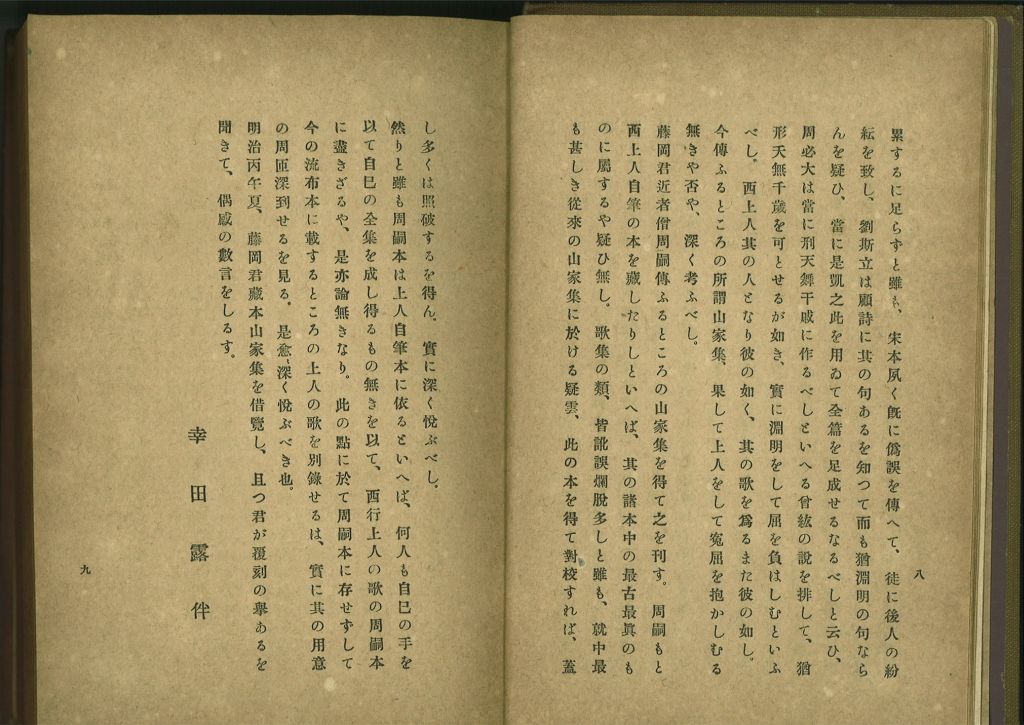 累するに足らずと雖も、宋本夙く旣に僞誤を傳へて、徒に後人の紛
紜を致し、劉斯立は顧詩に其の句あるを知つて而も猶淵明の句なら
んを疑ひ、當に是凱之此を用ゐて全篇を足成せるなるべしと云ひ、
周必大は當に刑天舞干戚に作るべしといへる曾紘の說を排して、猶
形夭無千歲を可とせるが如き、實に淵明をして屈を負はしむといふ
べし。西上人其の人となり彼の如く、其の歌を爲るまた彼の如し。
今傳ふるところの所謂山家集、果して上人をして寃屈を抱かしむる
無きや否や、深く考ふべし。
藤岡君近者僧周嗣傳ふるところの山家集を得て之を刊す。周嗣もと
西上人自筆の本を藏したりしといへば、其の諸本中の最古最眞のも
のに屬するや疑ひ無し。歌集の類、皆訛誤爛脫多しと雖も、就中最
も甚しき從來の山家集に於ける疑雲、此の本を得て對校すれば、蓋
八
し多くは照破するを得ん。實に深く悅ぶべし。
然りと雖も周嗣本は上人自筆本に依るといへば、何人も自己の手を
以て自己の全集を成し得るもの無きを以て、西行上人の歌の周嗣本
に盡きざるや、是亦論無きなり。此の點に於て周嗣本に存せずして
今の流布本に載するところの上人の歌を別錄せるは、實に其の用意
の周匝深到せるを見る。是愈〻深く悅ぶべき也。
明治丙午夏、藤岡君藏本山家集を借覽し、且つ君が覆刻の擧あるを
聞きて、偶感の數言をしるす。
幸田露伴
九